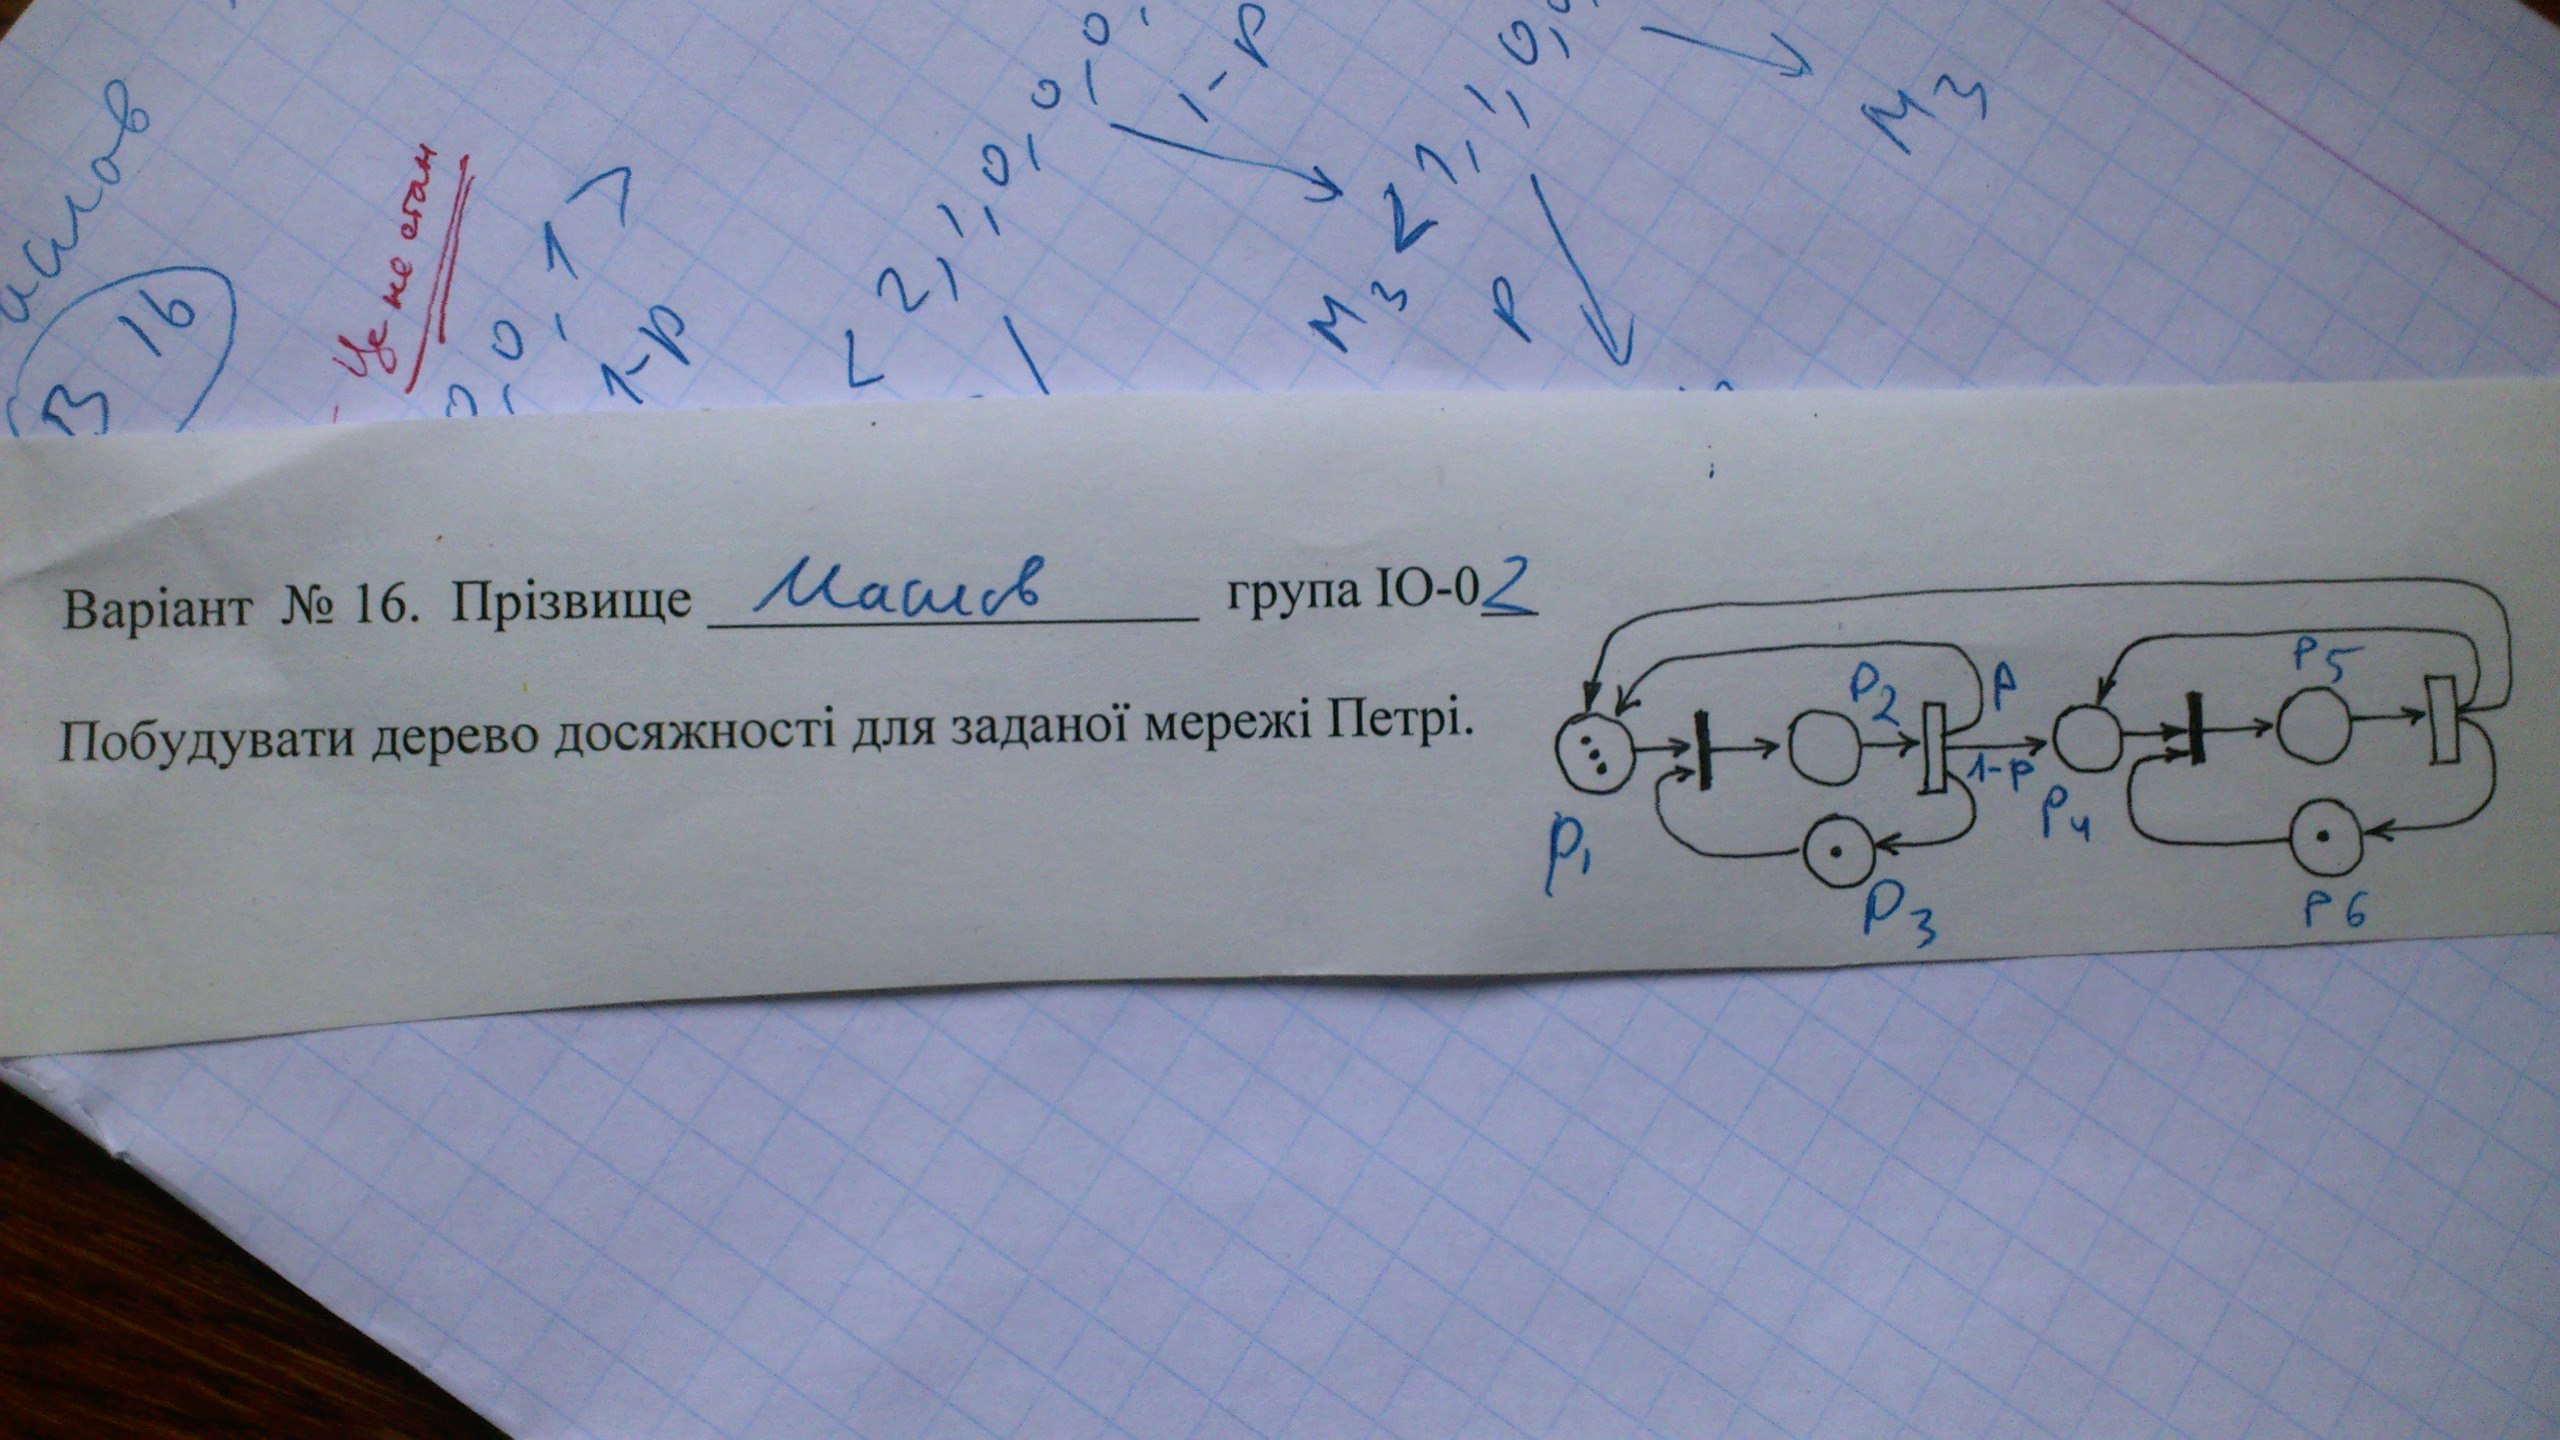 В 16
Це не стан
0, 0, 1 >
1-p
< 2, 1, 0, 0, 0,
1-p
M3
< 1, 1, 0,
p
M3
Варіант № 16. Прізвище Маслов група ІО-02
Побудувати дерево досяжності для заданої мережі Петрі.
P1
P2
P
1-p
P3
P4
P5
P6